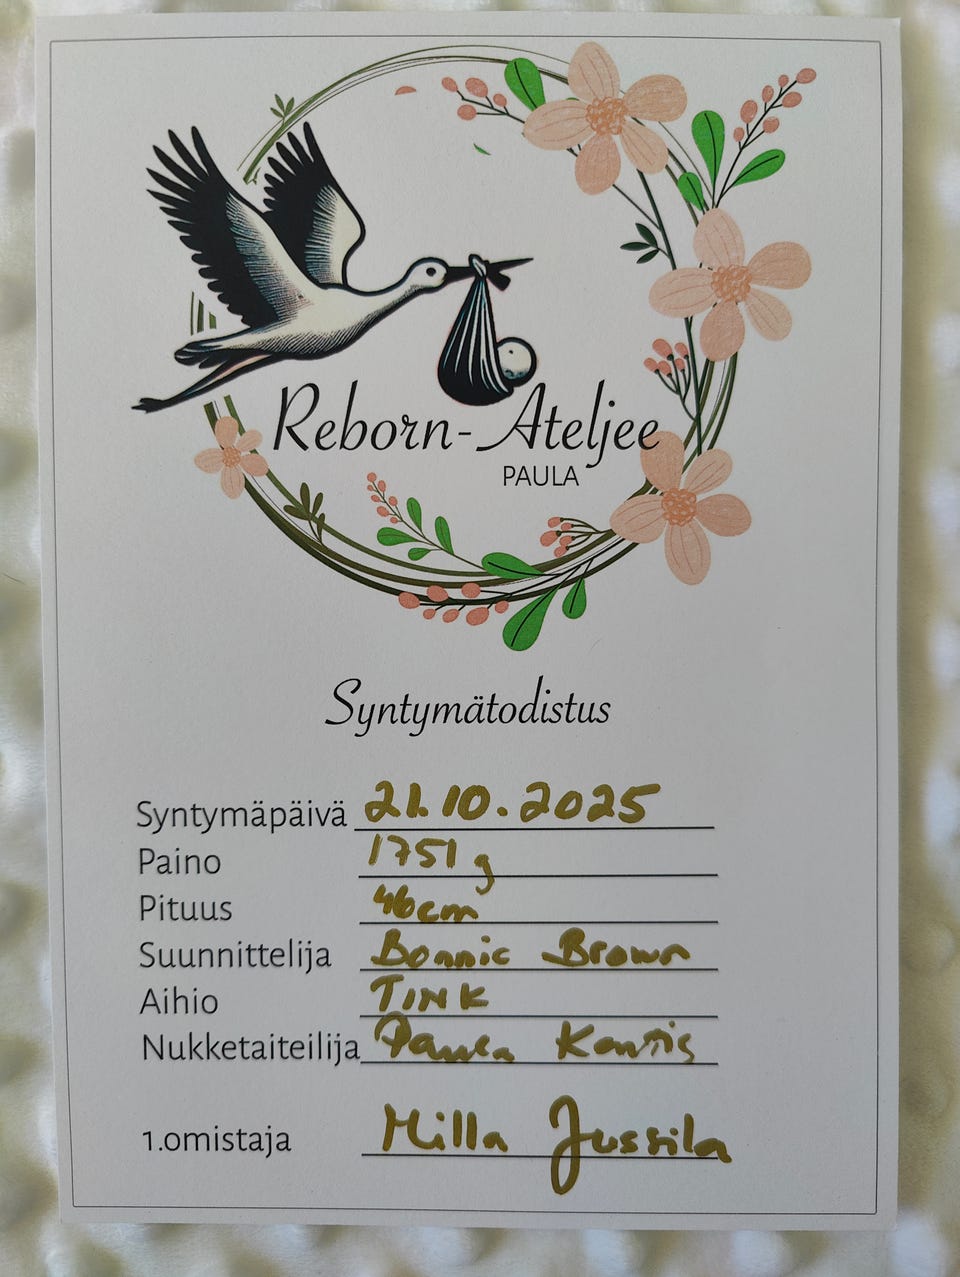 Reborn-Ateljee
PAULA
Syntymätodistus
Syntymäpäivä 21.10.2025
Paino 1751 g
Pituus 46cm
Suunnittelija Bonnie Brown
Aihio TINK
Nukketaiteilija Paula
1.omistaja Milla Jussila